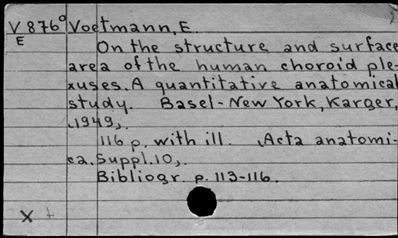 V 876° Voetmann, E.
E
On the structure and surface
area of the human choroid ple-
xuses. A quantitative anatomical
study. Basel-New York, Karger,
(1949).
116 p. with ill. (Acta anatomi-
ca. Suppl. 10).
Bibliogr. p. 113-116.
X +